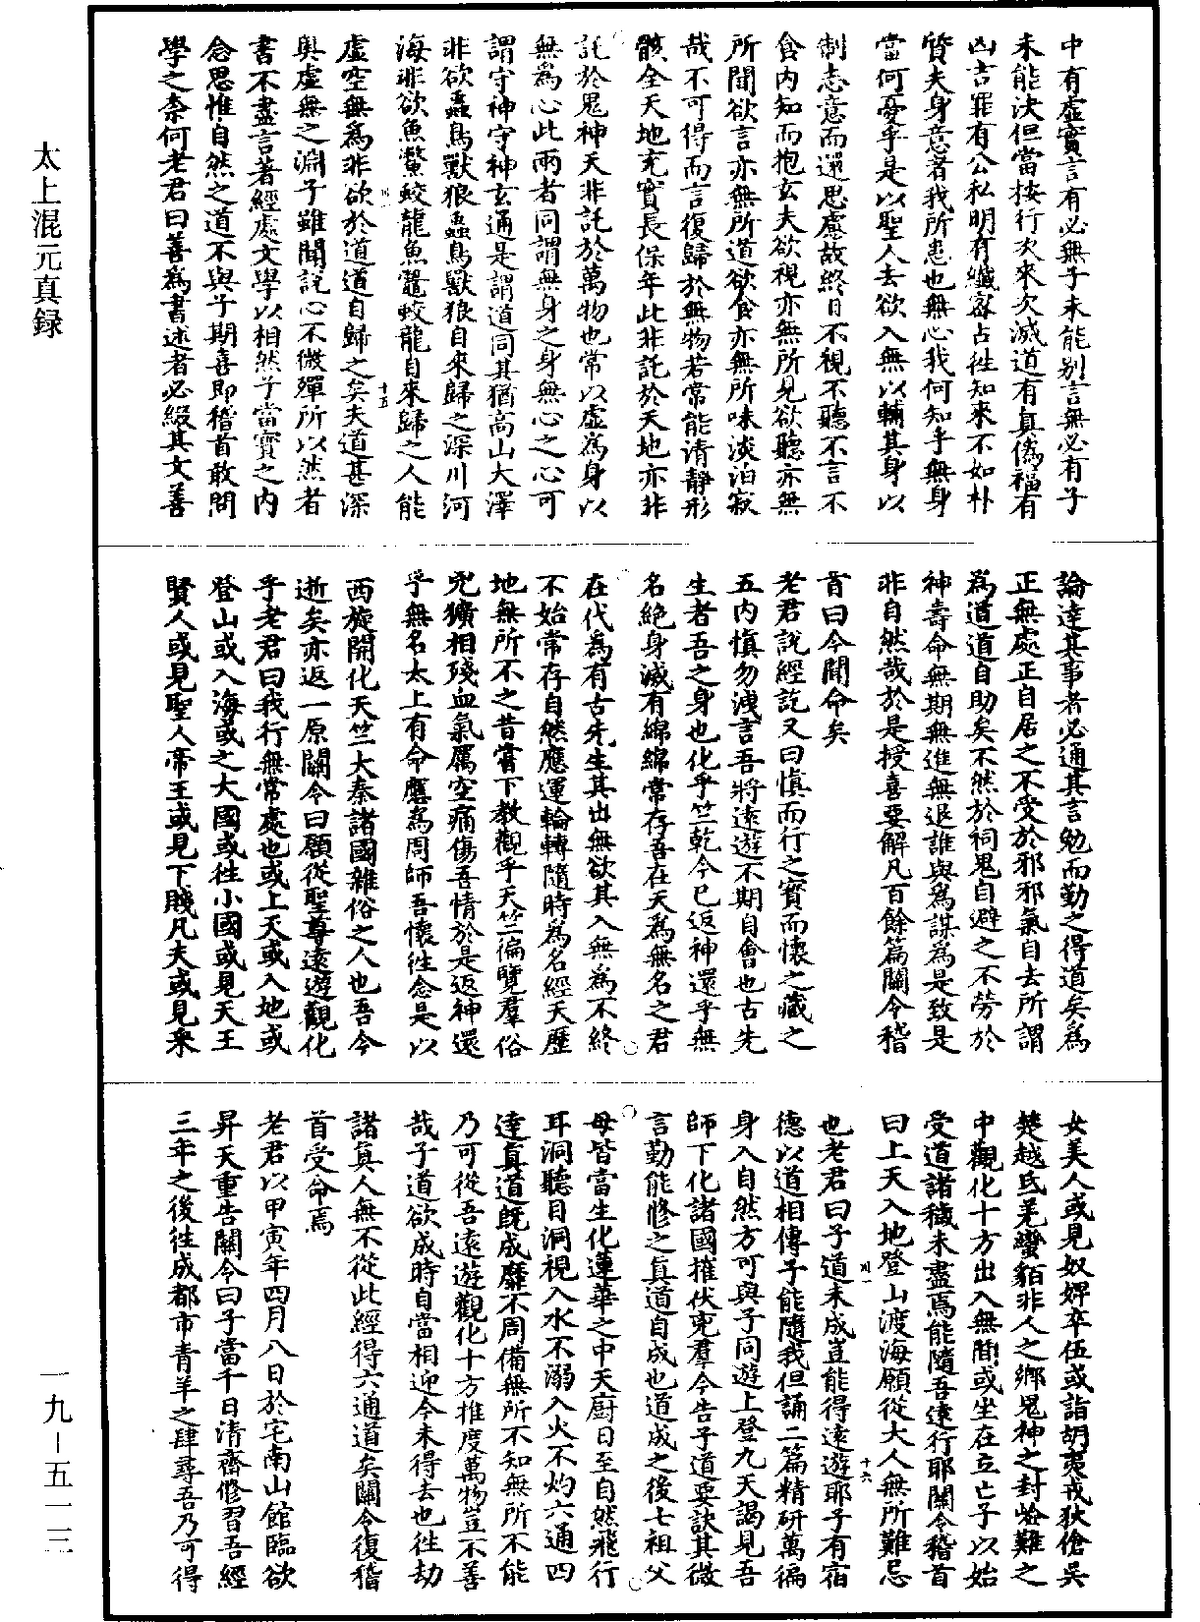 太上混元真録
中有虛實言有必無子未能别言無必有子
未能決但當按行次來次滅道有真僞福有
凶吉罪有公私明有纖密占往知來不如朴
質夫身意者我所患也無心我何知乎無身
當何憂乎是以聖人去欲入無以輔其身以
制志意而還思慮故終日不視不聽不言不
食内知而抱玄夫欲視亦無所見欲聽亦無
所聞欲言亦無所道欲食亦無所味淡泊寂
哉不可得而言復歸於無物若常能清靜形
骸全天地充實長保年此非託於天地亦非
託於鬼神天非託於萬物也常以虛為身以
無為心此兩者同謂無身之身無心之心可
謂守神守神玄通是謂道同其猶高山大澤
非欲蟲鳥獸狼蟲鳥獸狼自來歸之深川河
海非欲魚鱉蛟龍魚鼈蛟龍自來歸之人能
虛空無為非欲於道道自歸之矣夫道甚深
十五
奥虛無之淵子雖聞説心不微殫所以然者
書不盡言著經處文學以相然子當寳之内
念思惟自然之道不與子期喜即稽首敢問
學之柰何老君曰善為書述者必綴其文善
論達其事者必通其言勉而勤之得道矣為
正無處正自居之不受於邪邪氣自去所謂
為道道自助矣不然於祠鬼自避之不勞於
神壽命無期無進無退誰與為謀為是致是
非自然哉於是授喜要解凡百餘篇關令稽
首曰今聞命矣
老君説經訖又曰慎而行之寳而懷之藏之
五内慎勿洩言吾將遠遊不期自會也古先
生者吾之身也化乎竺乾今已返神還乎無
名絶身滅有綿綿常存吾在天為無名之君
在代為有古先生其出無欲其入無為不終
不始常存自然應運輪轉隨時為名經天歷
地無所不之昔嘗下教觀乎天竺徧覽羣俗
兇獷相殘血氣厲空痛傷吾情於是返神還
乎無名太上有命應為周師吾懷往念是以
西旋開化天竺大秦諸國雜俗之人也吾今
逝矣亦返一原關令曰願從聖尊遠遊觀化
乎老君曰我行無常處也或上天或入地或
登山或入海或之大國或往小國或見天王
賢人或見聖人帝王或見下賤凡夫或見釆
女美人或見奴婢卒伍或詣胡夷戎狄傖吳
楚越氐羌蠻貊非人之鄉鬼神之封嶮難之
中觀化十方出入無間或坐在立亡子以始
受道諸穢未盡焉能隨吾遠行耶關令稽首
曰上天入地登山渡海願從大人無所難忌
十六
也老君曰子道未成豈能得遠遊耶子有宿
德以道相傳子能隨我但誦二篇精研萬徧
身入自然方可與子同遊上登九天謁見吾
師下化諸國摧伏兇羣今告子道要訣其微
言勤能修之真道自成也道成之後七祖父
母皆當生化蓮華之中天廚日至自然飛行
耳洞聽目洞視入水不溺入火不灼六通四
達真道既成靡不周備無所不知無所不能
乃可從吾遠遊觀化十方推度萬物豈不善
哉子道欲成時自當相迎今未得去也往劫
諸真人無不從此經得六通道矣關令復稽
首受命焉
老君以甲寅年四月八日於宅南山館臨欲
昇天重告關令曰子當千日清齋修習吾經
三年之後往成都市青羊之肆尋吾乃可得
一九－五一三